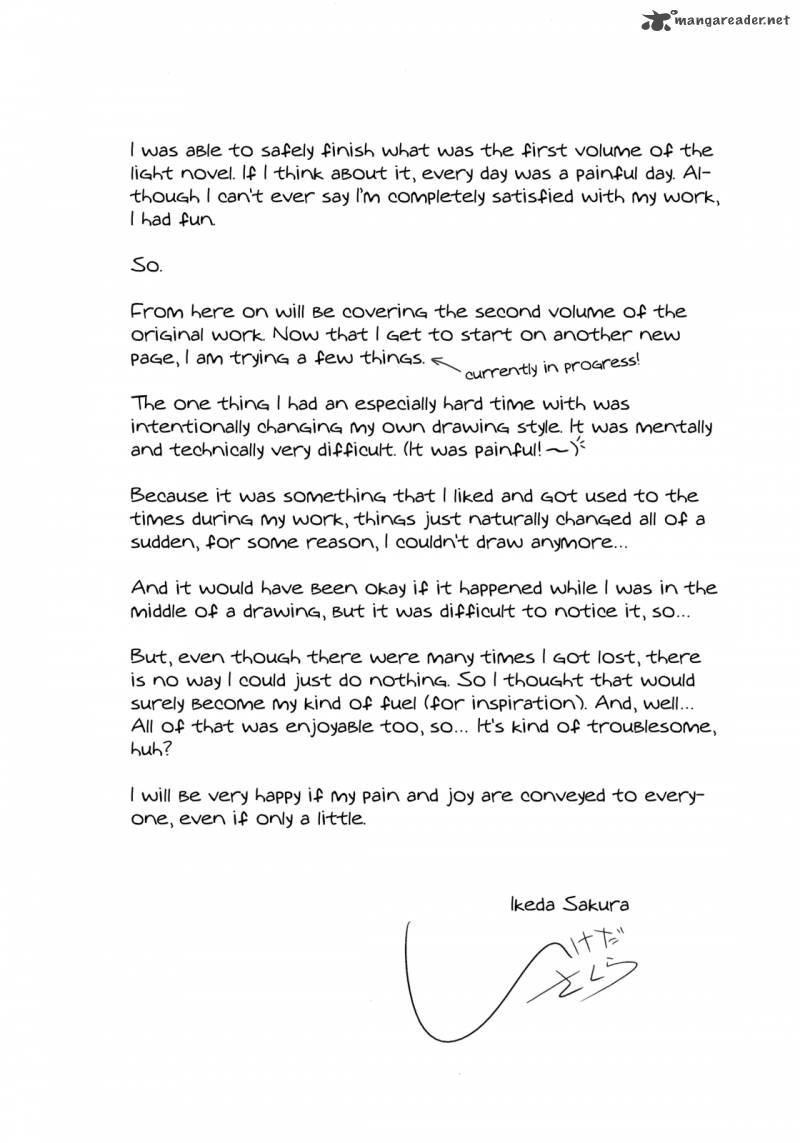 mangareader.net
I was able to safely finish what was the first volume of the
light novel. If I think about it, every day was a painful day. Al-
though I can't ever say I'm completely satisfied with my work,
I had fun.
So.
From here on will be covering the second volume of the
original work. Now that I get to start on another new
page, I am trying a few things.
currently in progress!
The one thing I had an especially hard time with was
intentionally changing my own drawing style. It was mentally
and technically very difficult. (It was painful! ~)
Because it was something that I liked and got used to the
times during my work, things just naturally changed all of a
sudden, for some reason, I couldn't draw anymore...
And it would have been okay if it happened while I was in the
middle of a drawing, but it was difficult to notice it, so...
But, even though there were many times I got lost, there
is no way I could just do nothing. So I thought that would
surely become my kind of fuel (for inspiration). And, well...
All of that was enjoyable too, so... It's kind of troublesome,
huh?
I will be very happy if my pain and joy are conveyed to every-
one, even if only a little.
Ikeda Sakura
いけだ
さくら